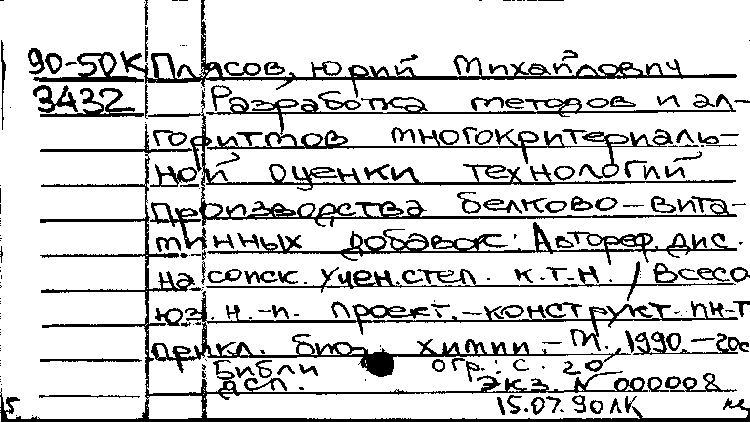 90-50К Плясов, Юрий Михайлович
3432 Разработка методов и ал-
горитмов многокритериаль-
ной оценки технологий
производства белково-вита-
минных добавок: Автореф. дис.
на соиск. учен. степ. к.т.н. / Всесо
юз. н.-и. проект.-конструкт. ин-т
прикл. биох химии. - М., 1990. - 20с
Библиогр.: с. 20
ДСП. Экз. N 000008
15.07.90ЛК